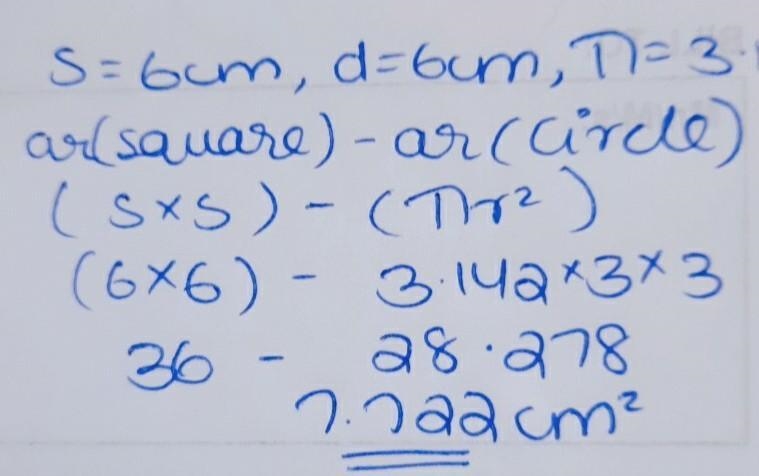 S=6cm, d=6cm, π=3.
ar(square) - ar(circle)
(S×S) - (πr²)
(6×6) - 3.142×3×3
36 - 28.278
7.722 cm²